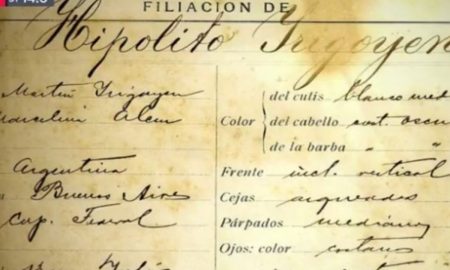 FILIACION DE
Hipolito Irigoyen
Martin Irigoyen
Marcelina Alem
Argentina
Buenos Aires
Cap. Federal
Color
del cutis blanco med
del cabello cast. oscu
de la barba " "
Frente incl. vertical
Cejas arqueadas
Párpados medianos
Ojos: color castaños